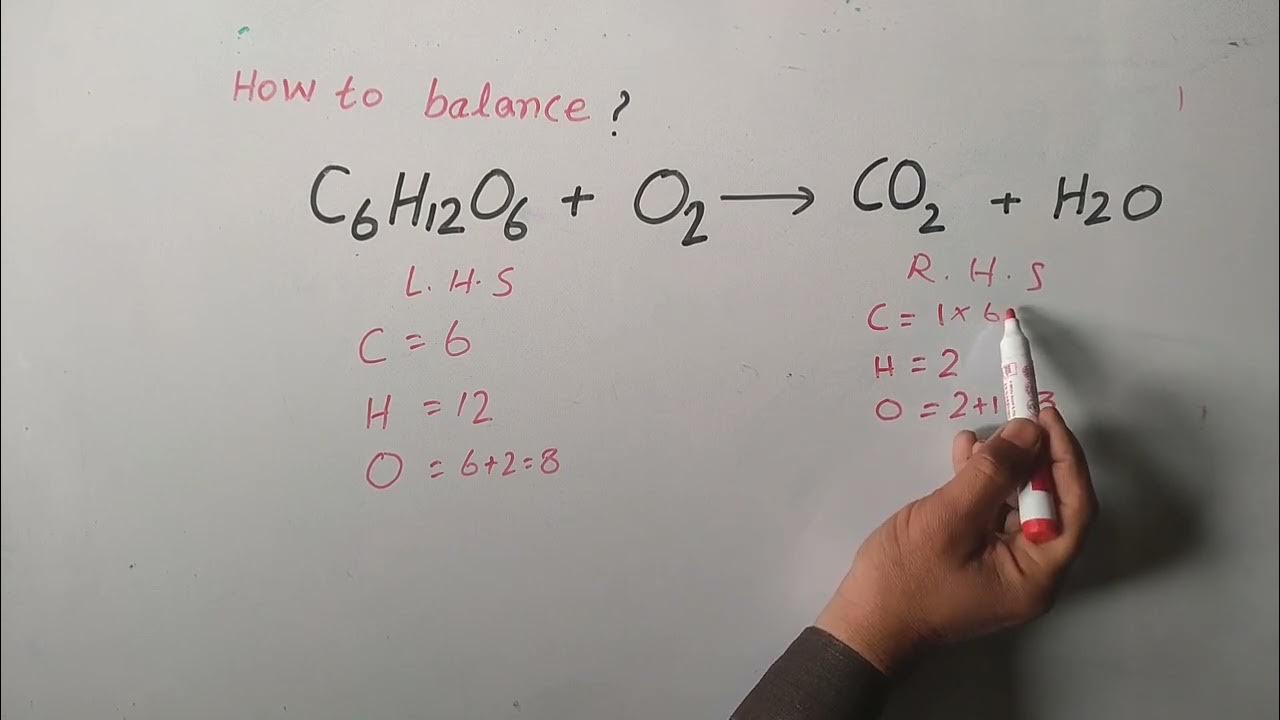 How to balance ?
C₆H₁₂O₆ + O₂ → CO₂ + H2O
L.H.S
C = 6
H = 12
O = 6+2=8
R.H.S
C = 1 x 6
H = 2
O = 2+1 3